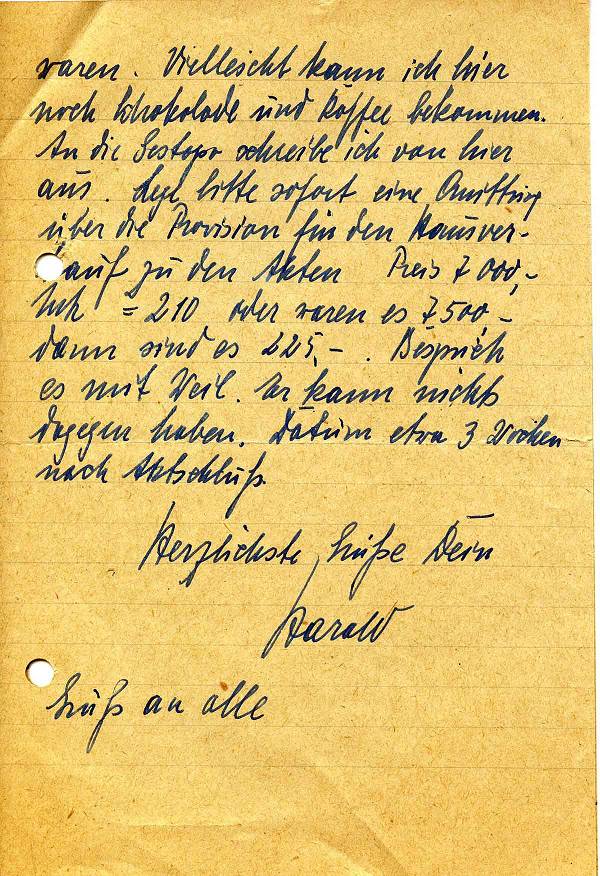 waren. Vielleicht kann ich hier
noch Schokolade und Kaffee bekommen.
An die Gestapo schreibe ich von hier
aus. Lege bitte sofort eine Quittung
über die Provision für den Hausver-
kauf zu den Akten Preis 7000,-
= 210 oder waren es 7500,-
dann sind es 225,-. Besprich
es mit Weil. Er kann nichts
dagegen haben. Datum etwa 3 Wochen
nach Aktschluß.
Herzlichste Grüße Dein
Harald
Gruß an alle